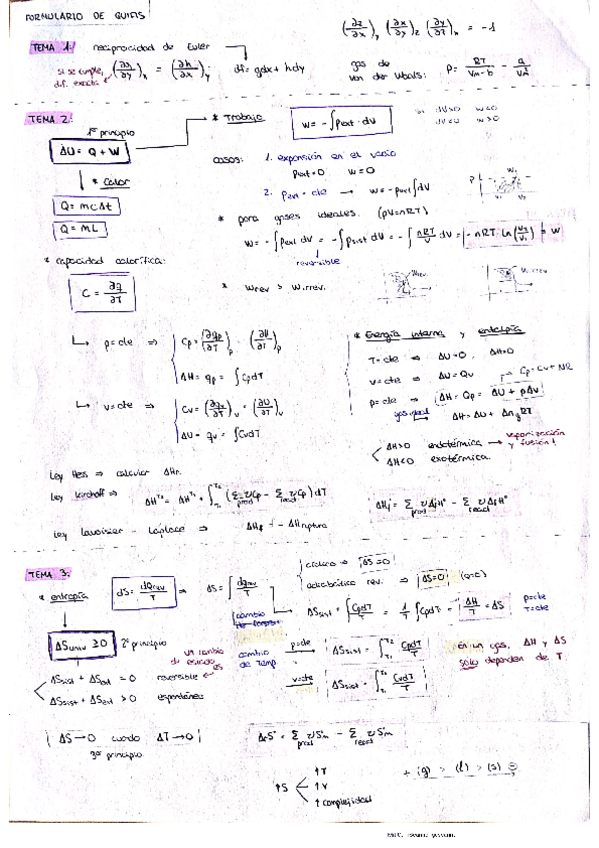 FORMULARIO DE QUIFIS
(∂z/∂x)y (∂x/∂y)z (∂y/∂z)x = -1
TEMA 1: reciprocidad de Euler
si se cumple, dif. exacta (∂g/∂y)x = (∂h/∂x)y df = gdx + hdy
gas de van der Waals: P = RT/(Vm-b) - a/Vm²
TEMA 2:
1er principio
ΔU = Q + W
* Trabajo
W = -∫pext · dV
si dV>0 W<0
dV<0 W>0
casos: 1. expansión en el vacío
Pext=0 W=0
2. Pext = cte → W = -pext∫dV
* Calor
Q = mcΔt
Q = mL
* para gases ideales. (pV=nRT)
W = -∫pext dV = -∫psist dV = -∫nRT/V dV = -nRT · ln(V2/V1) = W
reversible
* capacidad calorífica:
C = ∂q/∂T
* Wrev > Wirrev.
Wrev.
Wirrev
↳ p=cte ⇒ Cp = (∂qp/∂T)p = (∂H/∂T)p
ΔH = qp = ∫CpdT
↳ v=cte ⇒ Cv = (∂qv/∂T)v = (∂U/∂T)v
ΔU = qv = ∫CvdT
* Energía interna y entalpía
T=cte ⇒ ΔU=0, ΔH=0
v=cte ⇒ ΔU = Qv
Cp = Cv + NR
p=cte ⇒ ΔH = Qp = ΔU + pΔV
gas ideal → ΔH = ΔU + ΔngRT
ΔH>0 endotérmica → vaporización y fusión!
ΔH<0 exotérmica.
Ley Hess ⇒ calcular ΔHr.
Ley Kirchoff ⇒ ΔH^T2 = ΔH^T1 + ∫T1 T2 (Σprod νCp - Σreact νCp) dT
ΔHj = Σprod νΔfH° - Σreact νΔfH°
Ley Lavoisier - Laplace ⇒ ΔHf = -ΔHruptura
TEMA 3:
* entropía
dS = dQrev/T ⇒ ΔS = ∫dQrev/T
cíclico ⇒ ΔS=0
adiabático rev. ⇒ ΔS=0 (Q=0)
ΔSsist = ∫CpdT/T = 1/T ∫CpdT = ΔH/T = ΔS
p=cte
T=cte
ΔSuniv ≥ 0 2º principio
un cambio de estado es
ΔSsist + ΔSext = 0 reversible
ΔSsist + ΔSext > 0 espontáneo
cambio de temp.
p=cte → ΔSsist = ∫T1 T2 CpdT/T
v=cte → ΔSsist = ∫T1 T2 CvdT/T
en un gas, ΔH y ΔS solo dependen de T.
ΔS→0 cuando ΔT→0
3er principio
ΔrS° = Σprod νSm - Σreact νSm
↑S
↑T
↑V
↑ complejidad
+ (g) > (l) > (s)